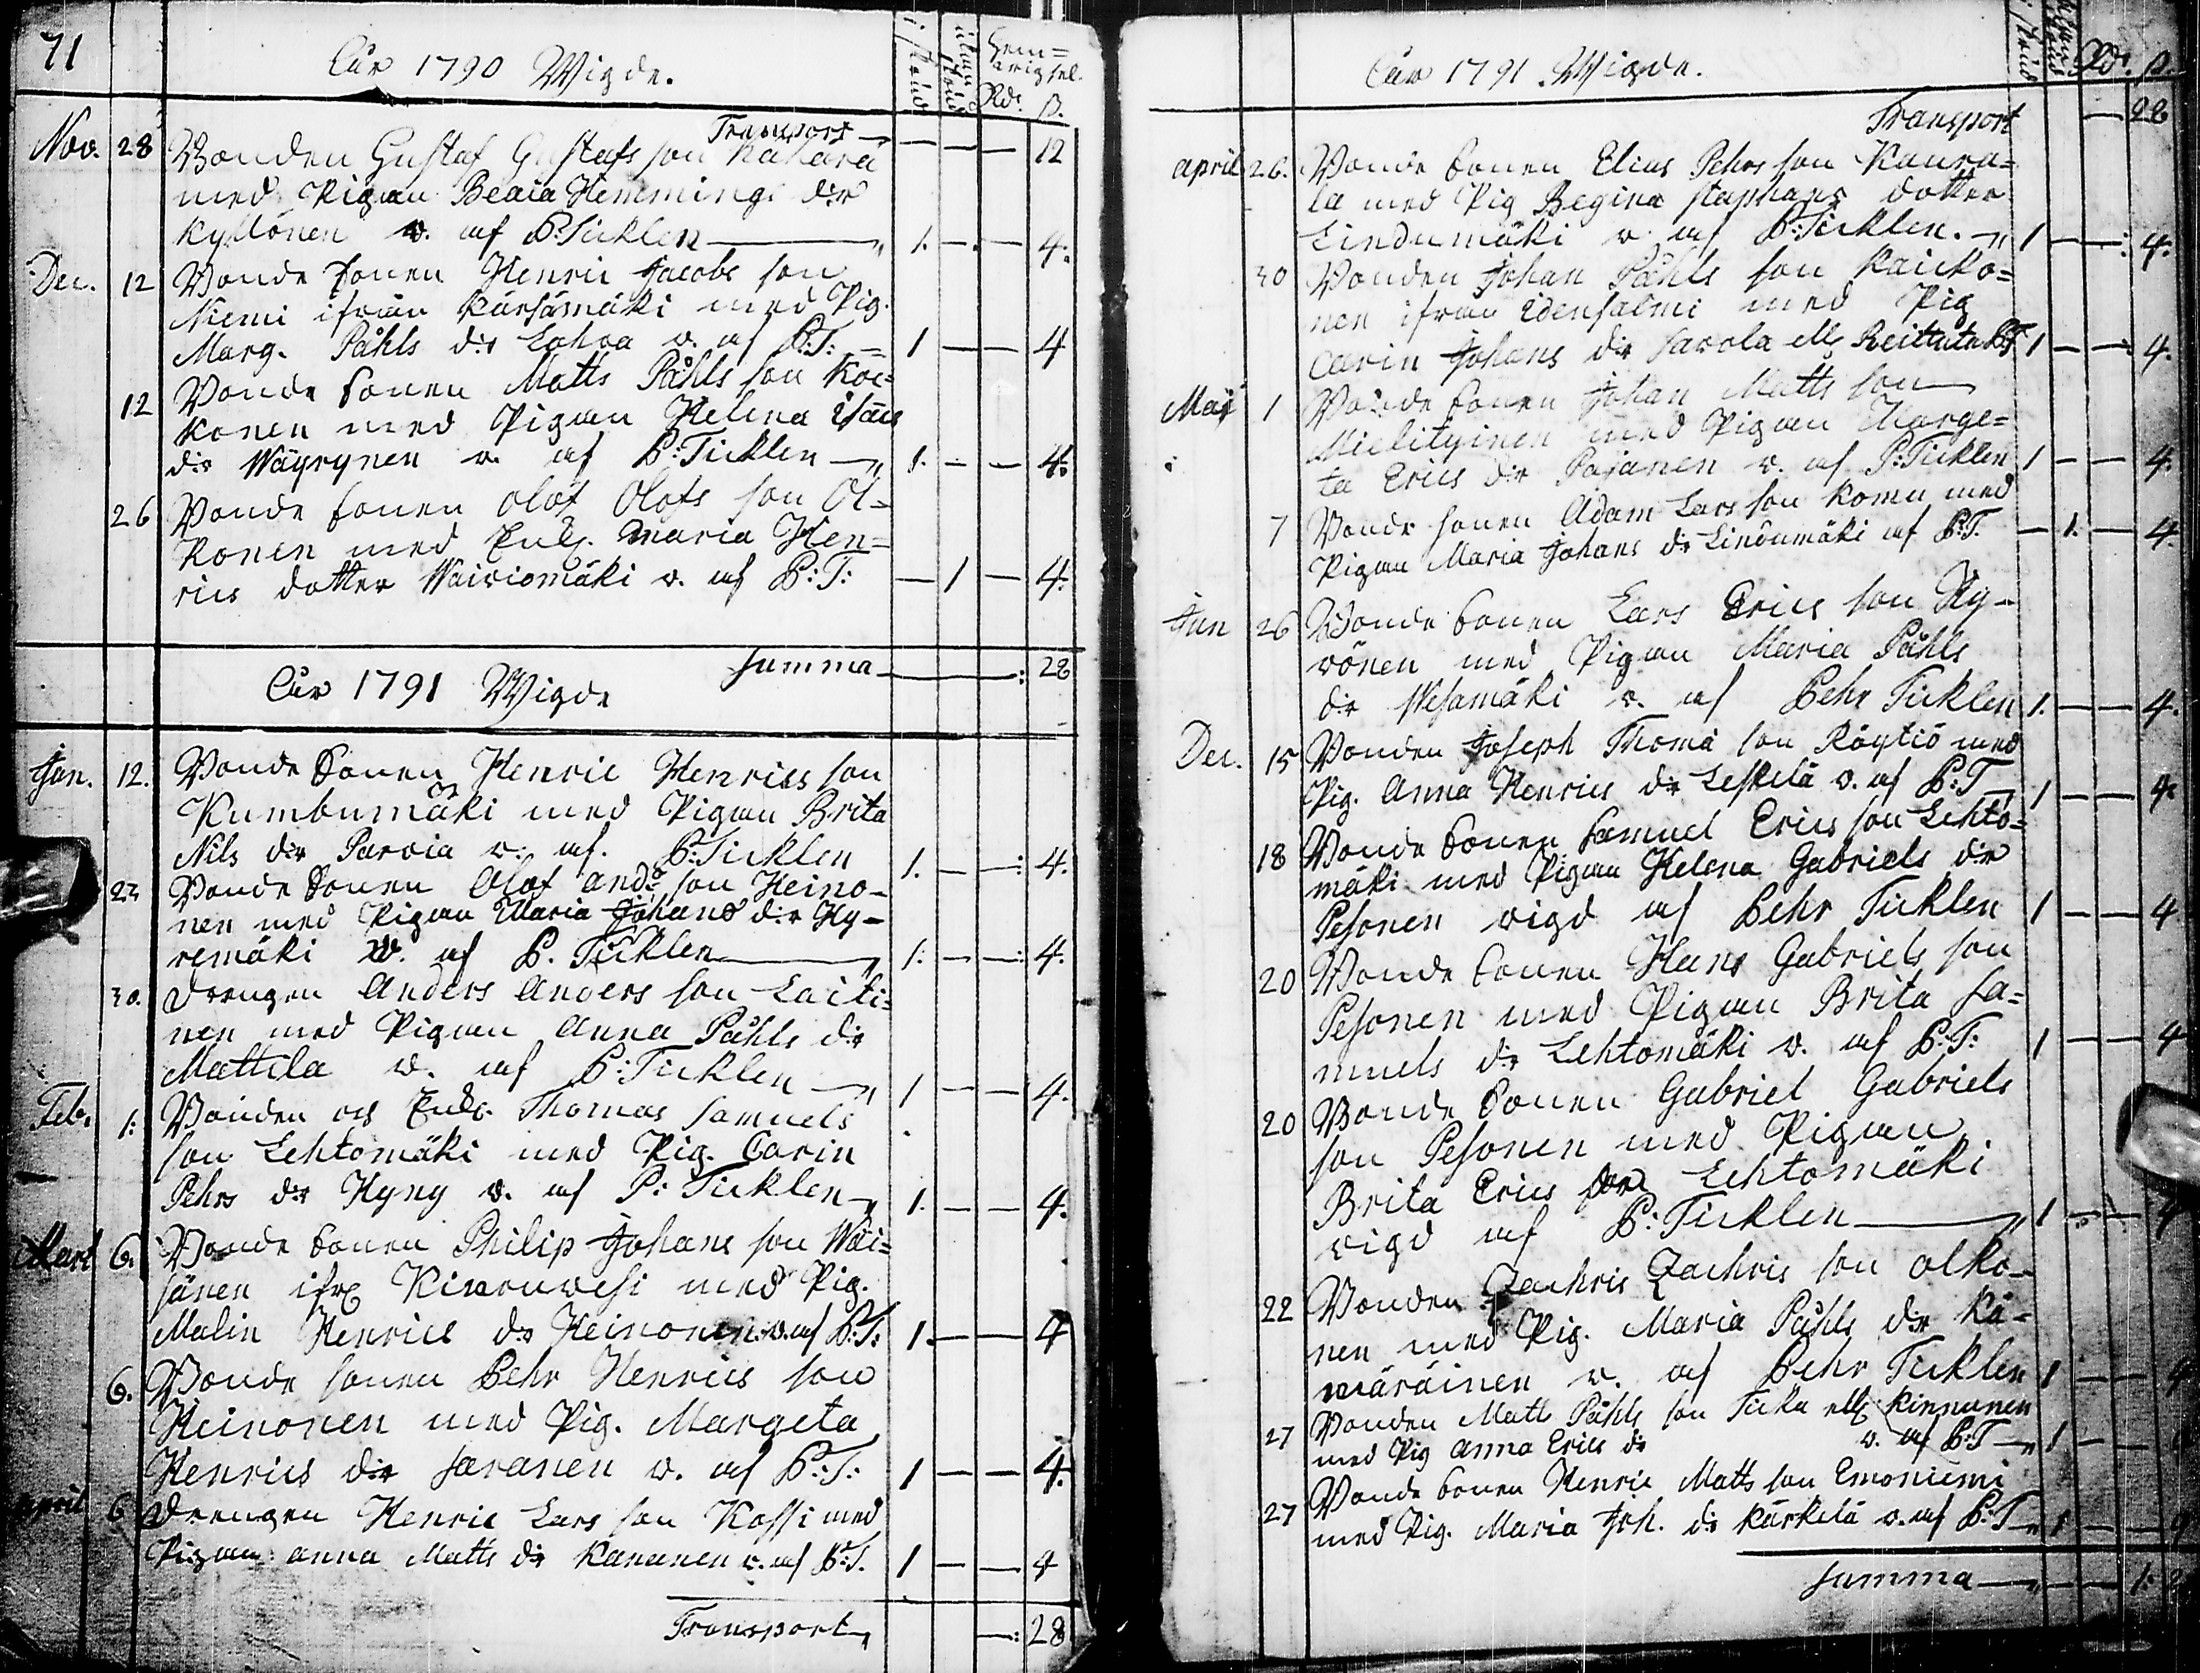 71
Åhr 1790 Wigde.
i stånd
Rdr. ß.
Transport — 12
Nov. 28 Bonden Gustaf Gustafs son Kaharä
med Pigan Beata Hemmings dr
Kyllönen v. af P: Ticklen — 1. — 4.
Dec. 12 Bonde Sonen Henric Jacobs son
Niemi ifrån Kärsämäki med Pig.
Marg. Påhls dr Lohva v. af P:T: — 1 — 4
12 Bonde Sonen Matts Påhls son Koc=
konen med Pigan Helena Isacs
dr Wäyrynen v. af P:Ticklen — 1. — 4.
26 Bonde Sonen Olof Olofs son Ol=
konen med Enk. Maria Hen=
rics dotter Wairiomäki v. af P:T: — 1 — 4.
Summa — : 28
Åhr 1791 Wigde
Jan. 12. Bonde Sonen Henric Henrics son
Kumbumäki med Pigan Brita
Nils dr Parvia v: af. P:Ticklen 1. — : 4.
23 Bonde Sonen Olof And: son Heino-
nen med Pigan Maria Johans dr Hy-
remäki v. af P. Ticklen — 1. — : 4.
30. Drengen Anders Anders son Laiti=
nen med Pigan Anna Påhls dr
Mattila v. af P:Ticklen — 1 — 4.
Feb. 1: Bonden och Enkl. Thomas Samuels
son Lehtomäki med Pig. Carin
Pehrs dr Hyny v. af P: Ticklen 1. — 4.
Mart 6. Bonde Sonen Philip Johans son Wäi=
sänen ifr. Kiuruwesi med Pig.
Malin Henrics dr Heinonen v. af P:T: 1. — 4
6. Bonde sonen Pehr Henrics son
Heinonen med Pig. Margeta
Henrics dr Savanen v. af P:T: 1 — 4.
April 6 Drengen Henric Lars son Kassi med
Pigan Anna Matts dr Kananen v. af P:T. 1 — 4
Transport — : 28
Åhr 1791. Wigde.
i stånd
Rdr. ß.
Transport — 28
April 26. Bonde Sonen Elias Pehrs son Kaura=
la med Pig Regina Staphans dotter
Lindumäki v. af P:Ticklen. — 1 — : 4.
30 Bonden Johan Påhls son Kaicko=
nen ifrån Idensalmi med Pig
Carin Johans dr Savola ell. Reittula P:T 1 — 4.
Maji 1 Bonde Sonen Johan Matts son
Mielityinen med Pigan Marge=
ta Erics dr Pajanen v. af P:Ticklen 1 — 4.
7 Bonde sonen Adam Lars son Komu med
Pigan Maria Johans dr Lindumäki af P:T. — 1. — 4.
Jun 26 Bonde Sonen Lars Erics son Ry-
vönen med Pigan Maria Påhls
dr Wesamäki v. af Pehr Ticklen 1. — 4.
Dec. 15 Bonden Joseph Thoma son Röytiö med
Pig. Anna Henrics dr Leskelä v. af P:T 1 — 4.
18 Bonde Sonen Samuel Erics son Lehto=
mäki med Pigan Helena Gabriels dr
Pesonen vigd af Pehr Ticklen 1 — 4
20 Bonde Sonen Hans Gabriels son
Pesonen med Pigan Brita Sa=
muels dr Lehtomäki v. af P:T: 1 — 4
20 Bonde Sonen Gabriel Gabriels
son Pesonen med Pigan
Brita Erics Lehtomäki
vigd af P:Ticklen — 1 — 4
22 Bonden Zachris Zachris son Olko-
nen med Pig. Maria Påhls dr Kä-
märäinen v. af Pehr Ticklen 1 — 4
27 Bonden Matts Påhls son Ticka ell. Kinnunen
med Pig Anna Erics dr v. af P:T — 1 —
27 Bonde Sonen Henric Matts son Emoniemi
med Pig. Maria Joh. dr Kärkelä v. af P:T 1 —
Summa — 1: